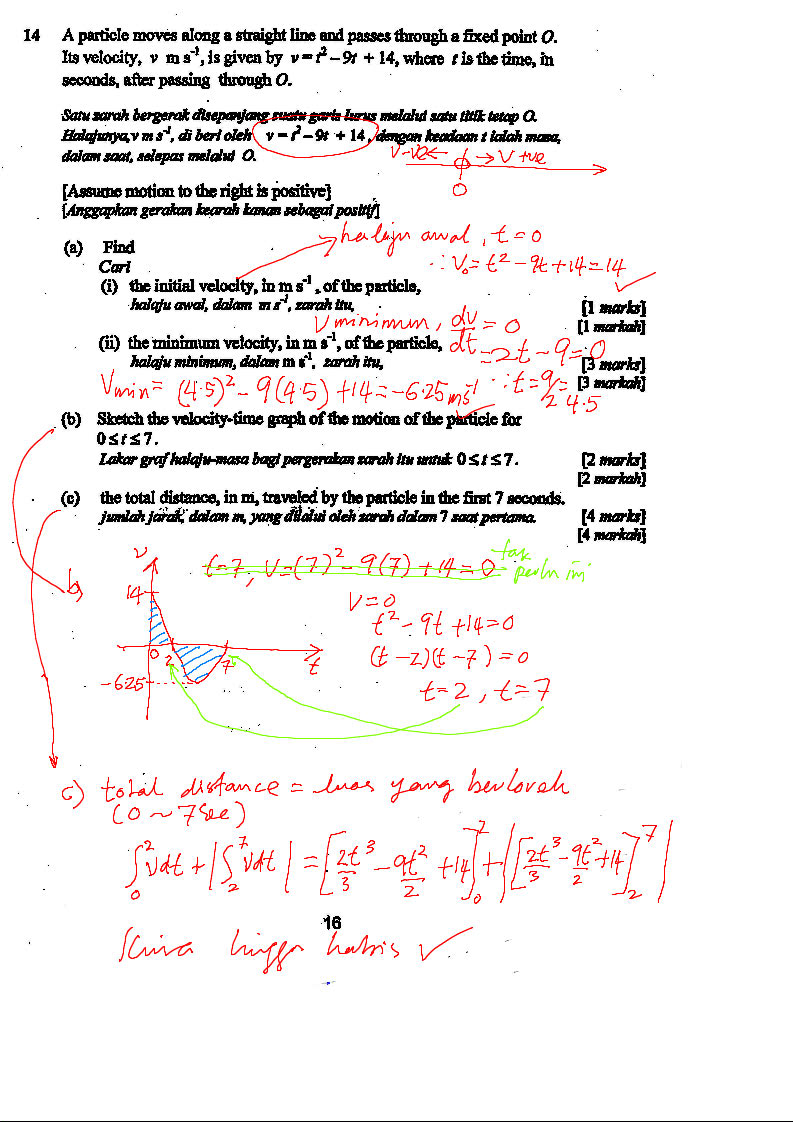 14 A particle moves along a straight line and passes through a fixed point O.
Its velocity, v m s⁻¹, is given by v = t² – 9t + 14, where t is the time, in
seconds, after passing through O.
Satu zarah bergerak disepanjang suatu garis lurus melalui satu titik tetap O.
Halajunya, v m s⁻¹, di beri oleh v = t² – 9t + 14, dengan keadaan t ialah masa,
dalam saat, selepas melalui O.
V -ve ← → V +ve
O
[Assume motion to the right is positive]
[Anggapkan gerakan kearah kanan sebagai positif]
halaju awal, t = 0
(a) Find
Cari
∴ V₀ = t² - 9t + 14 = 14
(i) the initial velocity, in m s⁻¹, of the particle,
halaju awal, dalam m s⁻¹, zarah itu,
[1 marks]
[1 markah]
V minimum, dv/dt = 0
(ii) the minimum velocity, in m s⁻¹, of the particle,
= 2t - 9 = 0
halaju minimum, dalam m s⁻¹, zarah itu,
[3 marks]
[3 markah]
Vmin = (4.5)² - 9(4.5) + 14 = -6.25 ms⁻¹ ∴ t = 9/2 = 4.5
(b) Sketch the velocity-time graph of the motion of the particle for
0 ≤ t ≤ 7.
Lakar graf halaju-masa bagi pergerakan zarah itu untuk 0 ≤ t ≤ 7.
[2 marks]
[2 markah]
(c) the total distance, in m, traveled by the particle in the first 7 seconds.
jumlah jarak, dalam m, yang dilalui oleh zarah dalam 7 saat pertama.
[4 marks]
[4 markah]
t=7, V=(7)² - 9(7) + 14 = 0
tak
perlu ini
b)
v
14
0 2 7 t
-6.25
V=0
t² - 9t + 14 = 0
(t - 2)(t - 7) = 0
t = 2, t = 7
c) total distance = luas yang berlorek
(0 ~ 7 sec)
∫₀² vdt + |∫₂⁷ vdt| = [2t³/3 - 9t²/2 + 14]₀² + |[2t³/3 - 9t²/2 + 14]₂⁷|
16
kira hingga habis ✓